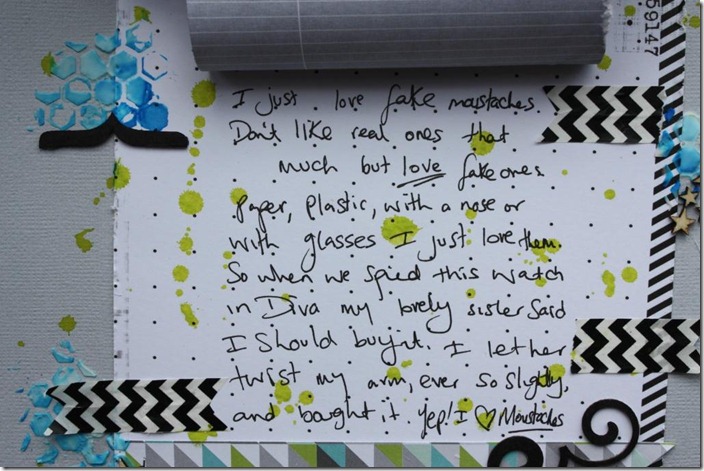 59147
I just love fake moustaches.
Don't like real ones that
much but love fake ones.
Paper, plastic, with a nose or
with glasses I just love them.
So when we spied this watch
in Diva my lovely sister said
I should buy it. I let her
twist my arm, ever so slightly,
and bought it. Yep! I ♡ Moustaches